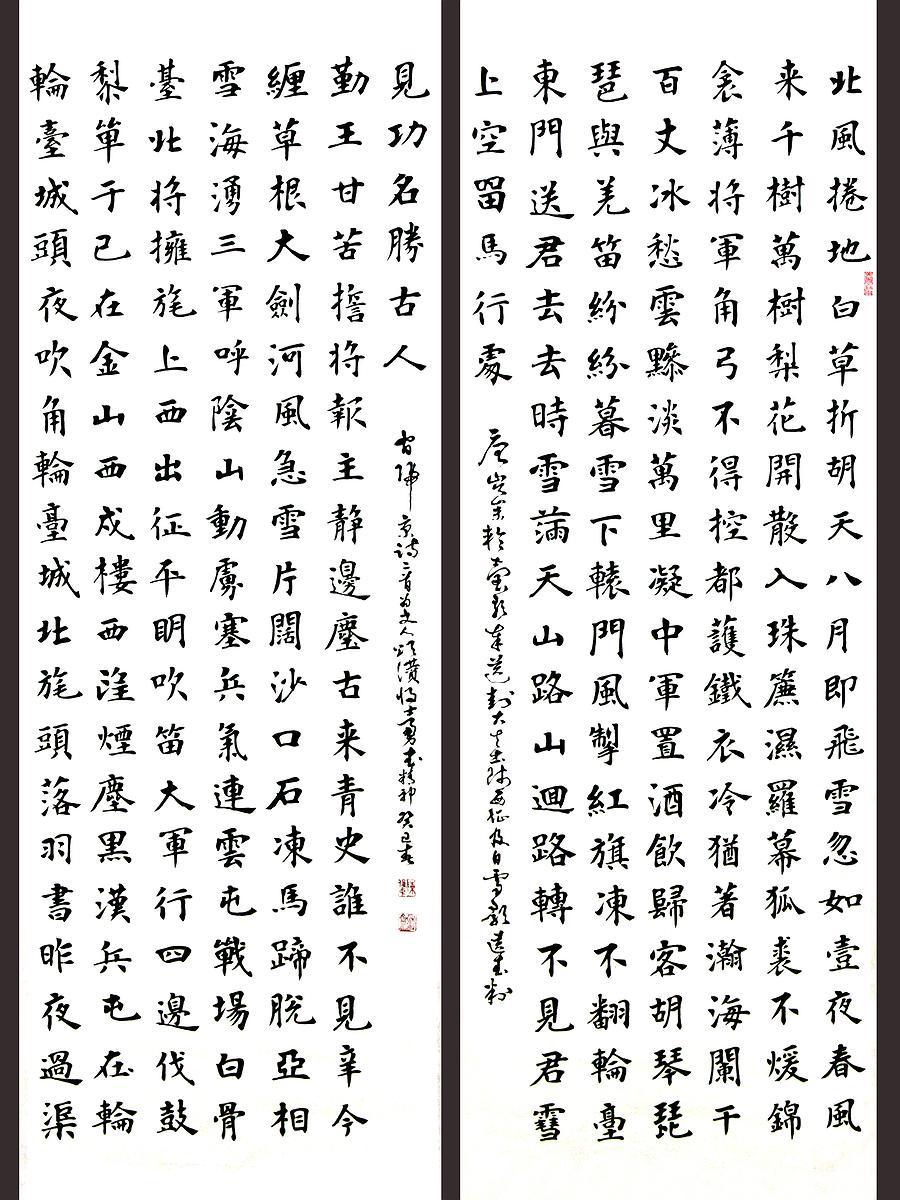 北風捲地白草折胡天八月即飛雪忽如壹夜春風
来千樹萬樹梨花開散入珠簾濕羅幕狐裘不煖錦
衾薄將軍角弓不得控都護鐵衣冷猶著瀚海闌干
百丈冰愁雲黲淡萬里凝中軍置酒飲歸客胡琴琵
琶與羌笛紛紛暮雪下轅門風掣紅旗凍不翻輪臺
東門送君去去時雪滿天山路山迴路轉不見君雪
上空留馬行處
唐岑參輪臺歌奉送封大夫出師西征及白雪歌送武判
輪臺城頭夜吹角輪臺城北旄頭落羽書昨夜過渠
黎單于已在金山西戍樓西望煙塵黑漢兵屯在輪
臺北將擁旄上西出征平明吹笛大軍行四邊伐鼓
雪海湧三軍呼陰山動虜塞兵氣連雲屯戰場白骨
纏草根大劍河風急雪片闊沙口石凍馬蹄脫亞相
勤王甘苦擔將報主靜邊塵古来青史誰不見辛今
見功名勝古人
官歸京詩二首為文人頌讚將士勇武精神 癸巳春